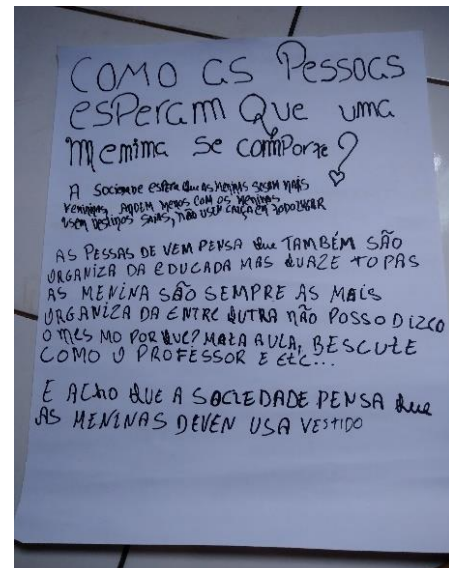 COMO AS PESSOAS
ESPERAM QUE UMA
MENIMA SE COMPORTE?
A SOCIEADE ESPERA QUE AS MENINAS SEJAM MAIS
FEMININAS, ANDEM MENOS COM OS MENINOS
USEM VESTIDOS SAIAS, NÃO USEM CALÇA EM TODO LUGAR
AS PESSAS DE VEM PENSA QUE TAMBÉM SÃO
ORGANIZA DA EDUCADA MAS QUAZE TOPAS
AS MENINA SÃO SEMPRE AS MAIS
ORGANIZA DA ENTRE QUTRA NÃO POSSO DIZCO
O MES MO POR QUE? MATA AULA, BESCUTE
COMO O PROFESSOR E ETC...
E ACHO QUE A SOCIEDADE PENSA QUE
AS MENINAS DEVEN USA VESTIDO